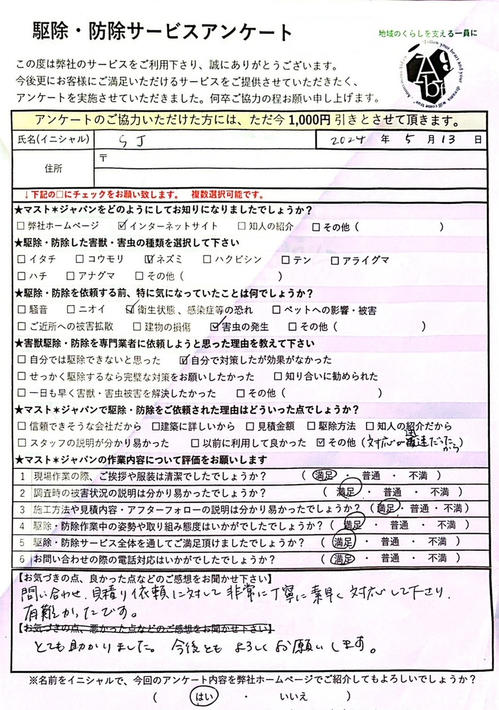 駆除・防除サービスアンケート
地域のくらしを支える一員に
この度は弊社のサービスをご利用下さり、誠にありがとうございます。
今後更にお客様にご満足いただけるサービスをご提供させていただきたく、
アンケートを実施させていただきました。何卒ご協力の程お願い申し上げます。
アンケートのご協力いただけた方には、ただ今1,000円引きとさせて頂きます。
氏名(イニシャル) SJ 2024年 5月 13日
住所 〒
↓下記の□にチェックをお願い致します。 複数選択可能です。
★マスト*ジャパンをどのようにしてお知りになりましたでしょうか?
□弊社ホームページ ☑インターネットサイト □知人の紹介 □その他( )
★駆除・防除した害獣・害虫の種類を選択して下さい
□イタチ □コウモリ ☑ネズミ □ハクビシン □テン □アライグマ
□ハチ □アナグマ □その他( )
★駆除・防除を依頼する前、特に気になっていたことは何でしょうか?
□騒音 □ニオイ ☑衛生状態、感染症等の恐れ □ペットへの影響・被害
□ご近所への被害拡散 □建物の損傷 ☑害虫の発生 □その他( )
★害獣駆除・防除を専門業者に依頼しようと思った理由を教えて下さい
□自分では駆除できないと思った ☑自分で対策したが効果がなかった
□せっかく駆除するなら完璧な対策をお願いしたかった □知り合いに勧められた
□一日も早く害獣・害虫被害を解決したかった □その他( )
★マスト*ジャパンで駆除・防除をご依頼された理由はどういった点でしょうか?
□信頼できそうな会社だから □建築に詳しいから □見積金額 □駆除方法 □知人の紹介だから
□スタッフの説明が分かり易かった □以前に利用して良かった ☑その他(対応が迅速だったから)
★マスト*ジャパンの作業内容について評価をお願いします
1 現場作業の際、ご挨拶や服装は清潔でしたでしょうか? (満足・普通・不満)
2 調査時の被害状況の説明は分かり易かったでしょうか? (満足・普通・不満)
3 施工方法や見積内容・アフターフォローの説明は分かり易かったでしょうか? (満足・普通・不満)
4 駆除・防除作業中の姿勢や取り組み態度はいかがでしたでしょうか? (満足・普通・不満)
5 駆除・防除サービス全体を通してご満足頂けましたでしょうか? (満足・普通・不満)
6 お問い合わせの際の電話対応はいかがでしたでしょうか? (満足・普通・不満)
【お気づきの点、良かった点などのご感想をお聞かせ下さい】
問い合わせ、見積り依頼に対して非常に丁寧に素早く対応して下さり、
有難かったです。
【お気づきの点、悪かった点などのご感想をお聞かせ下さい】
とても助かりました。今後ともよろしくお願いします。
※名前をイニシャルで、今回のアンケート内容を弊社ホームページでご紹介してもよろしいでしょうか?
( はい ・ いいえ )